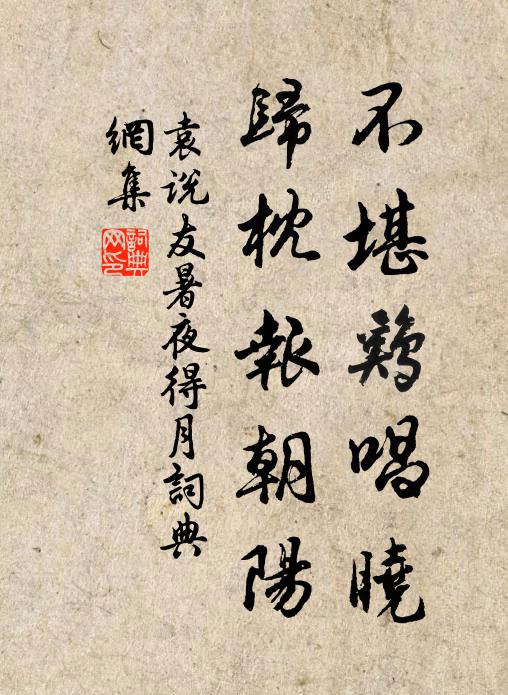 不堪鷄唱曉
歸枕報朝陽
袁說友暑夜得月詞典
網集
詞典網印